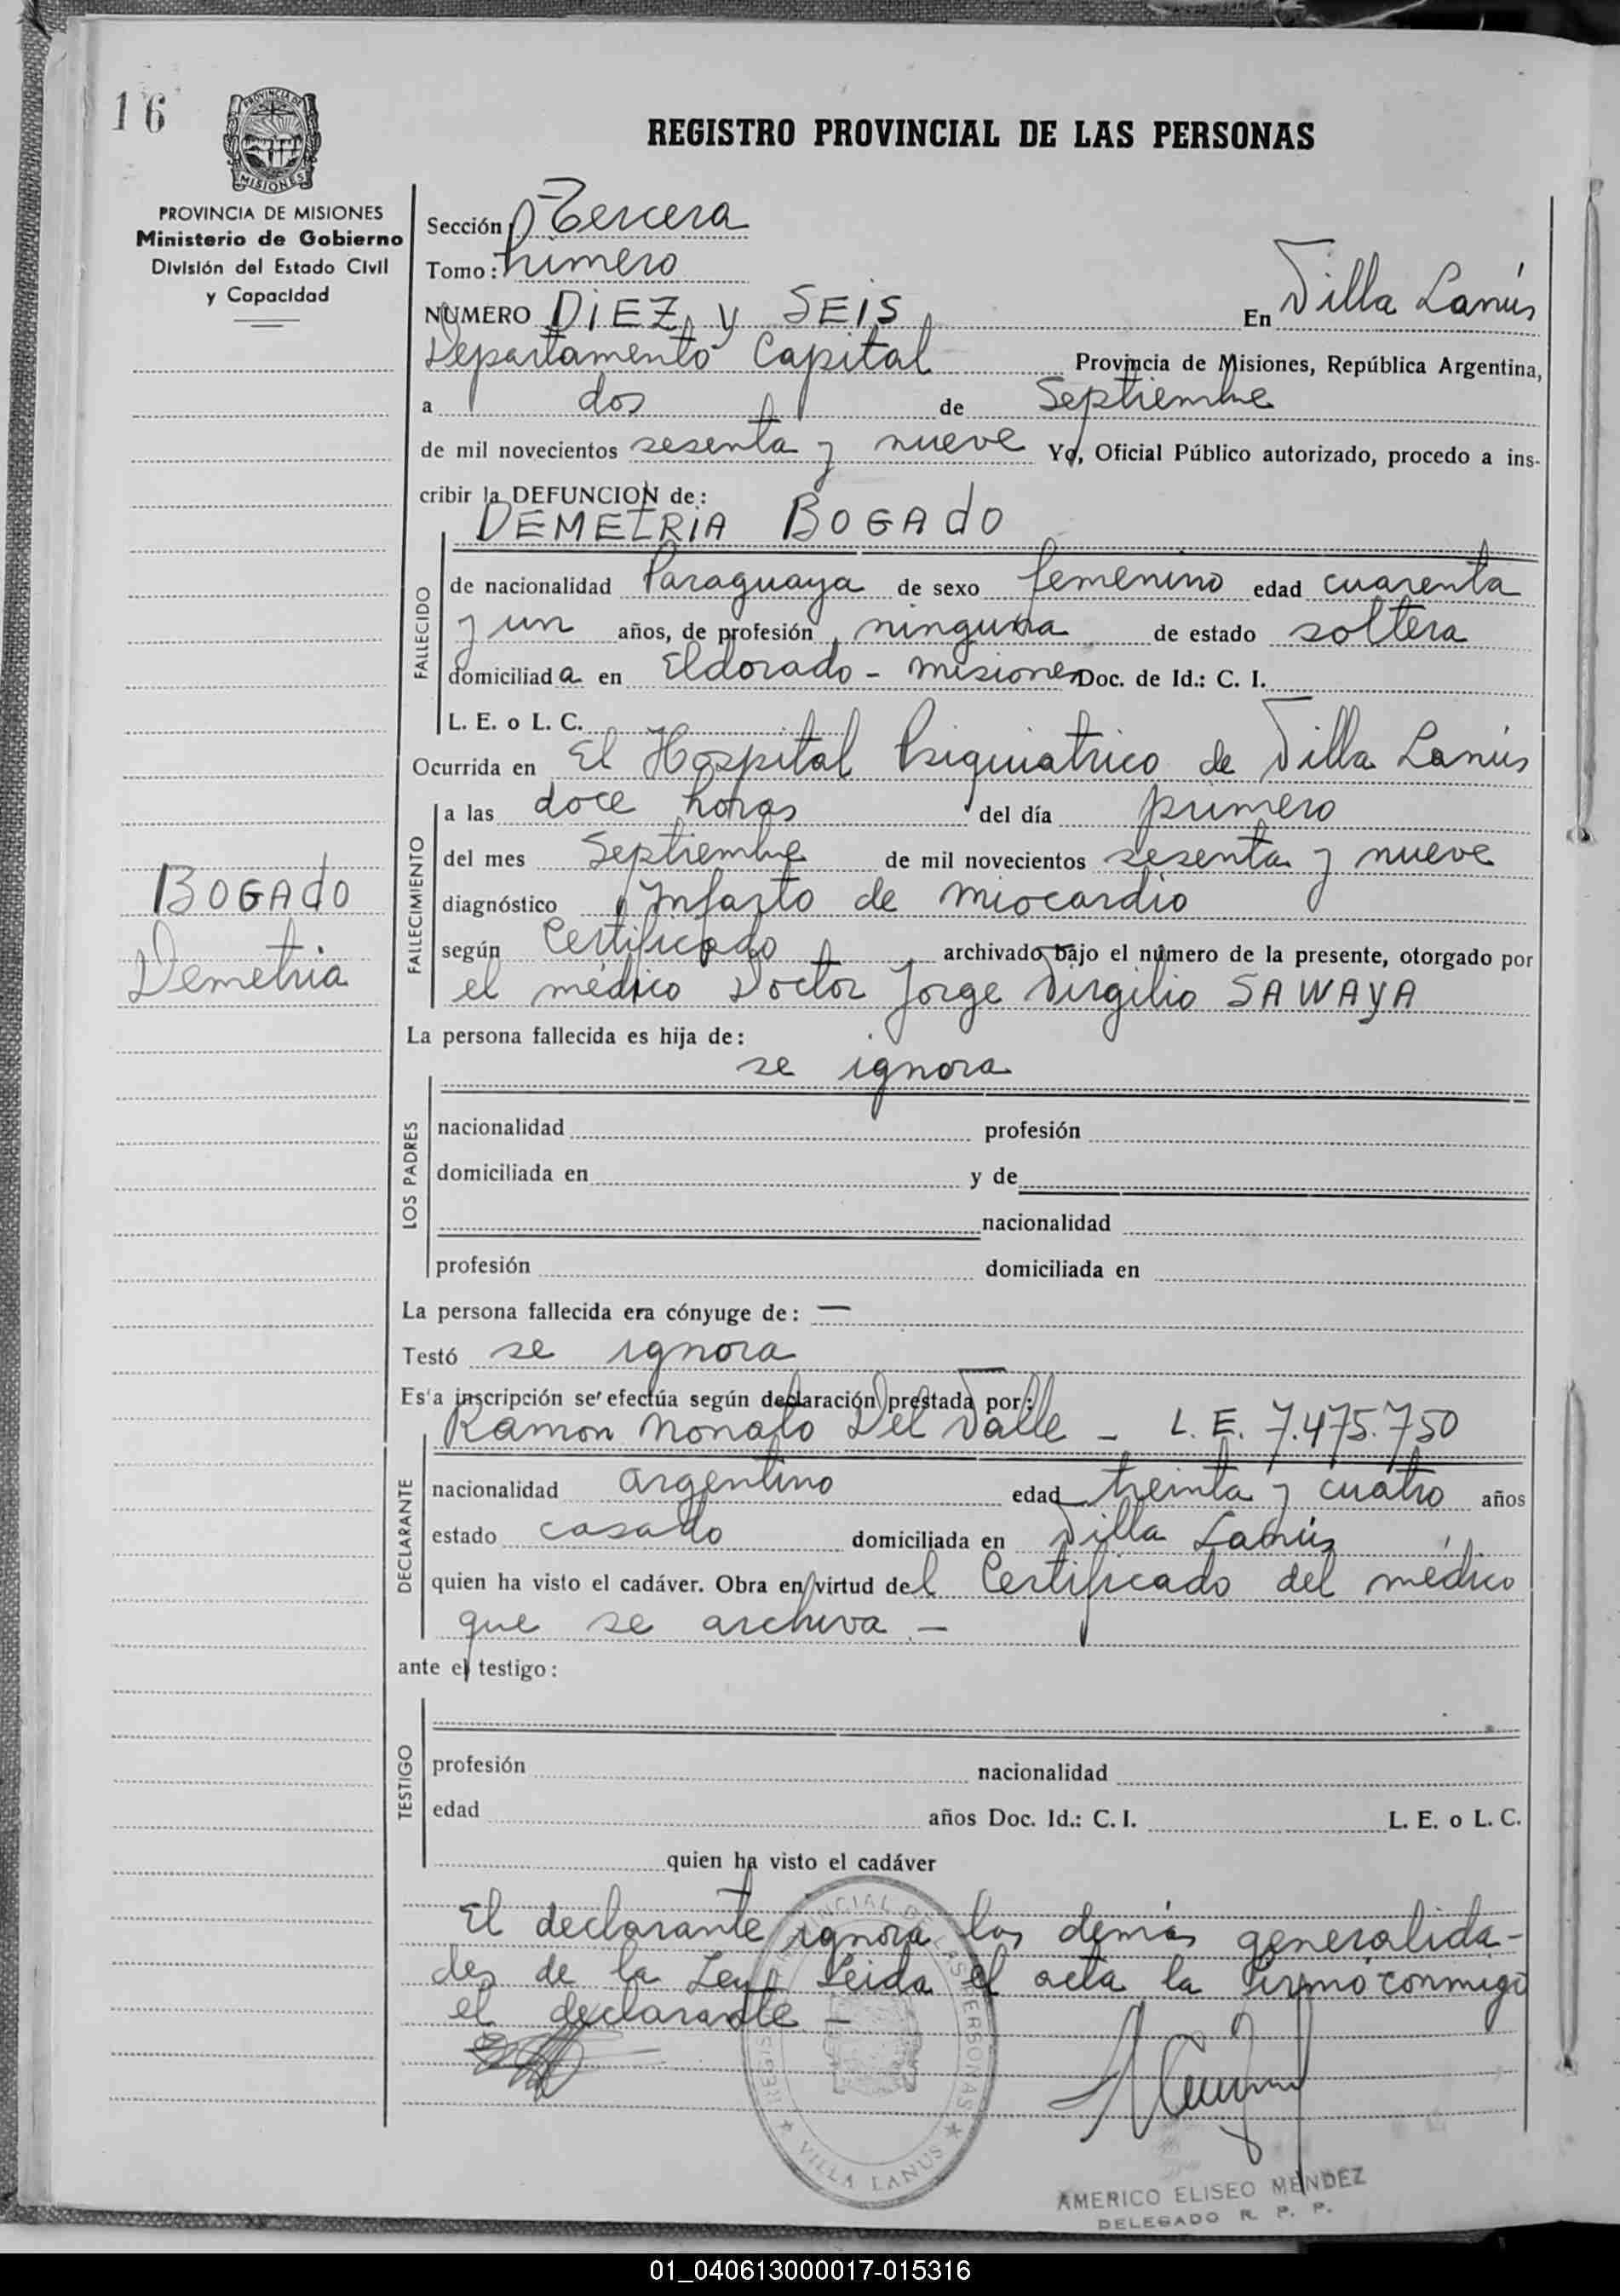 16
REGISTRO PROVINCIAL DE LAS PERSONAS
PROVINCIA DE
MISIONES
PROVINCIA DE MISIONES
Ministerio de Gobierno
División del Estado Civil
y Capacidad
Sección: Tercera
Tomo: Primero
NÚMERO DIEZ y SEIS En Villa Lanús
Departamento Capital Provincia de Misiones, República Argentina,
a dos de Septiembre
de mil novecientos sesenta y nueve Yo, Oficial Público autorizado, procedo a ins-
cribir la DEFUNCION de:
DEMETRIA BOGADO
FALLECIDO
de nacionalidad Paraguaya de sexo femenino edad cuarenta
y un años, de profesión ninguna de estado soltera
domiciliada en Eldorado - Misiones Doc. de Id.: C. I. —
L. E. o L. C.
Ocurrida en El Hospital Psiquiatrico de Villa Lanús
FALLECIMIENTO
a las doce horas del día primero
del mes Septiembre de mil novecientos sesenta y nueve
diagnóstico Infarto de miocardio
según Certificado archivado bajo el número de la presente, otorgado por
el médico Doctor Jorge Virgilio SAWAYA
BOGADO
Demetria
La persona fallecida es hija de:
se ignora
LOS PADRES
nacionalidad profesión
domiciliada en y de
nacionalidad
profesión domiciliada en
La persona fallecida era cónyuge de: —
Testó se ignora
Es'a inscripción se efectúa según declaración prestada por:
Ramon Nonato Del Valle - L. E. 7.475.750
DECLARANTE
nacionalidad argentino edad treinta y cuatro años
estado casado domiciliada en Villa Lanús
quien ha visto el cadáver. Obra en virtud del Certificado del médico
que se archiva.-
ante el testigo:
TESTIGO
profesión nacionalidad
edad años Doc. Id.: C. I. L. E. o L. C.
quien ha visto el cadáver
El declarante ignora las demás generalida-
des de la Ley. Leida el acta la firmó conmigo
el declarante -
REGISTRO PROVINCIAL DE LAS PERSONAS
★ VILLA LANUS ★
AMERICO ELISEO MENDEZ
DELEGADO R. P. P.
01_040613000017-015316